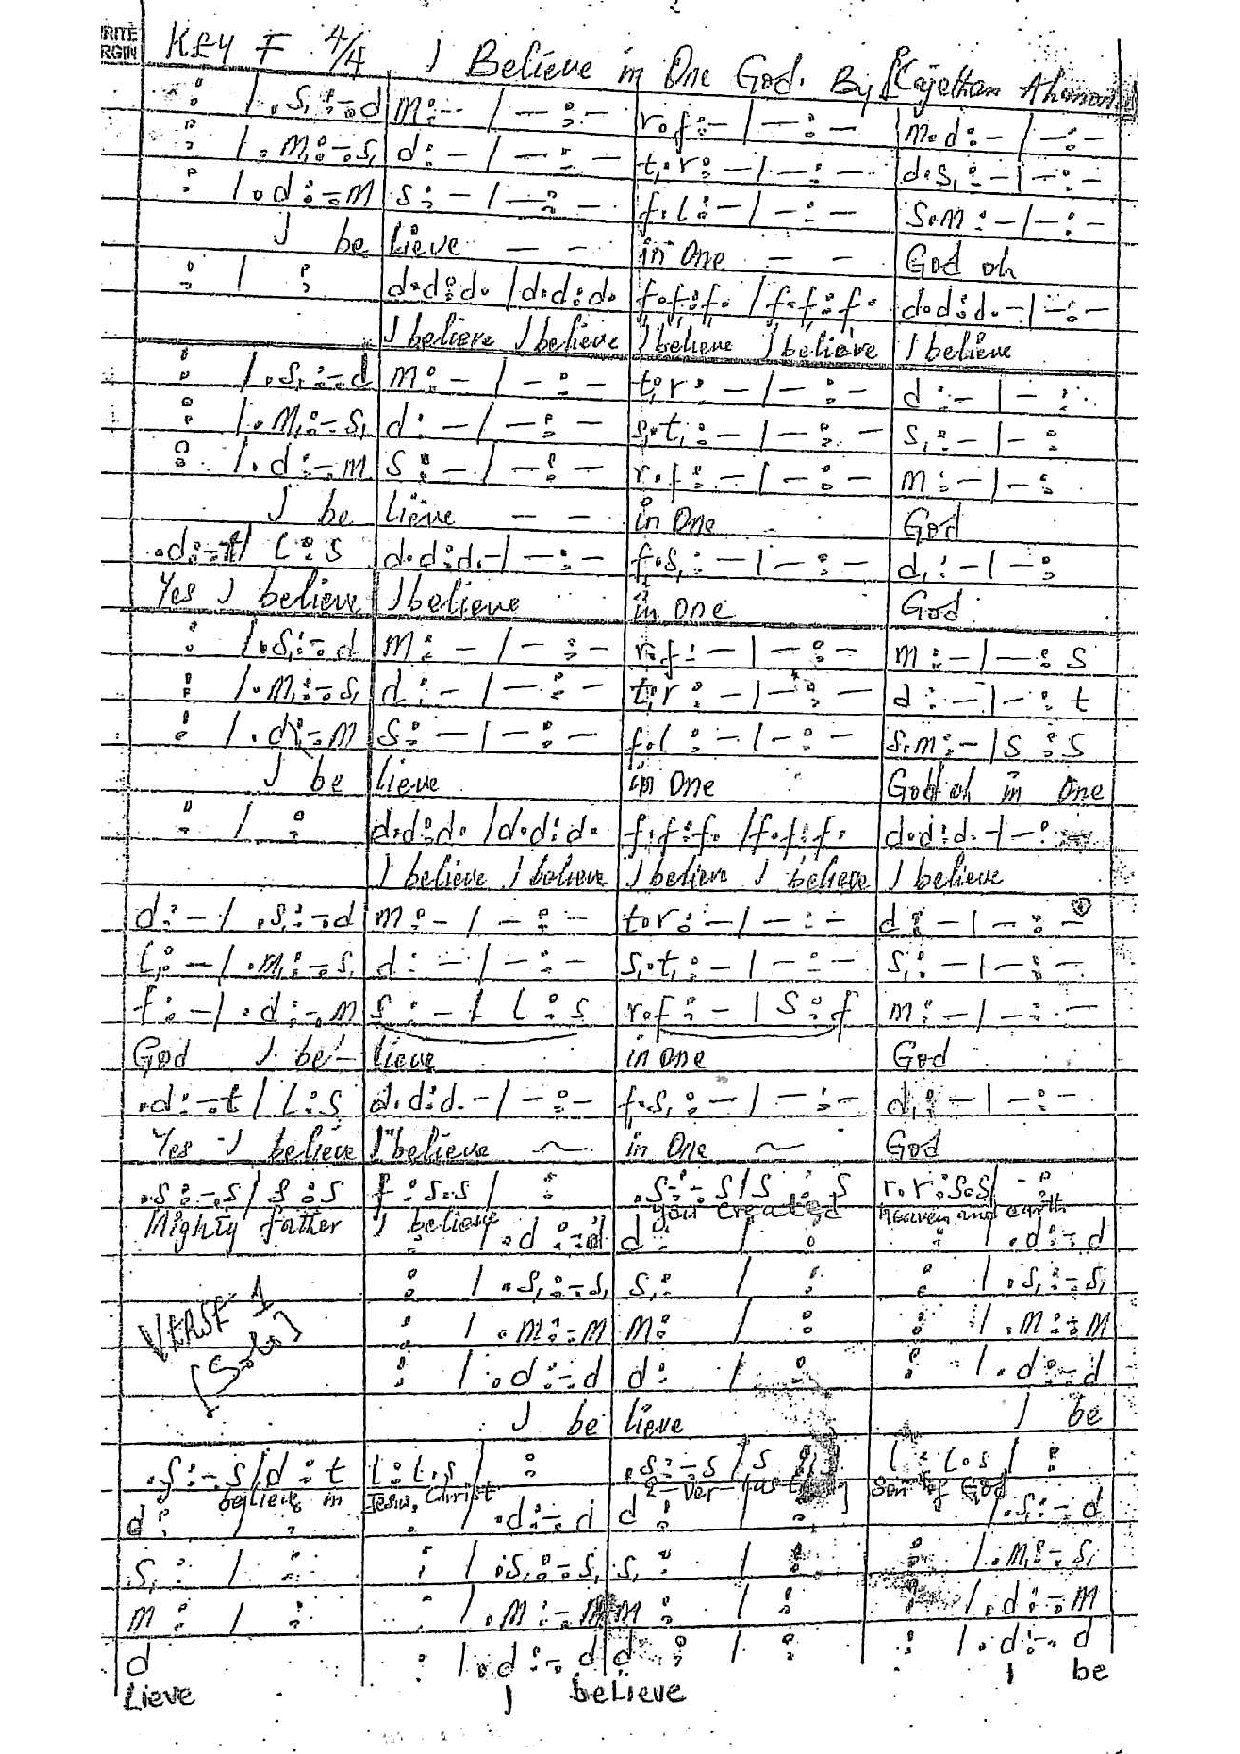 RITE
RGIN
KEY F 4/4 I Believe in One God. By Cajethan
: | .s₁:-.d | m:- | -:- | r.f:- | -:- | m.d:- | -:-
: | .m₁:-.s₁ | d:- | -:- | t₁.r:- | -:- | d.s₁:- | -:-
: | .d:-.m | s:- | -:- | f.l:- | -:- | s.m:- | -:-
I be lieve - - in One - - God oh
: | : | d.d:d. | d.d:d. | f₁.f₁:f₁. | f₁.f₁:f₁. | d.d:d.- | -:-
I believe I believe I believe I believe I believe
: | .s₁:-.d | m:- | -:- | t₁.r:- | -:- | d:- | -:
: | .m₁:-.s₁ | d:- | -:- | s₁.t₁:- | -:- | s₁:- | -:
: | .d:-.m | s:- | -:- | r.f:- | -:- | m:- | -:
I be lieve - - in One God
.d:-.t | l:s | d.d:d.- | -:- | f₁.s₁:- | -:- | d₁:- | -:
Yes I believe I believe in One God
: | .s₁:-.d | m:- | -:- | r.f:- | -:- | m:- | -:s
: | .m₁:-.s₁ | d:- | -:- | t₁.r:- | -:- | d:- | -:t
: | .d:-.m | s:- | -:- | f.l:- | -:- | s.m:- | s:s
I be lieve in One God oh in One
: | : | d.d:d. | d.d:d. | f.f:f. | f.f:f. | d.d:d.- | -:
I believe I believe I believe I believe I believe
d:- | .s₁:-.d | m:- | -:- | t.r:- | -:- | d:- | -:-
l₁:- | .m₁:-.s₁ | d:- | -:- | s₁.t₁:- | -:- | s₁:- | -:-
f:- | .d:-.m | s:- | l:s | r.f:- | s:f | m:- | -:-
God I be- lieve in one God
.d:-.t | l:s | d.d:d.- | -:- | f₁.s₁:- | -:- | d₁:- | -:-
Yes I believe I believe ~ in One ~ God
.s:-.s | s:s | f:s.s | : | .s:-.s | s:s | r.r:s.s | -:
Mighty father I believe you created Heaven and earth
: | .d:-.d | d: | : | : | .d:-.d
: | .s₁:-.s₁ | s₁: | : | : | .s₁:-.s₁
VERSE 1
[Solo]
: | .m:-.m | m: | : | : | .m:-.m
: | .d:-.d | d: | : | : | .d:-.d
I be lieve I be
.s:-.s | d:t | l:l.s | : | .s:-.s | s | l:l.s | :
believe in Jesus Christ Son of God
d: | : | : | .d:-.d | d: | : | .s:-.d
s₁: | : | : | .s₁:-.s₁ | s₁: | : | : | .m₁:-.s₁
m: | : | : | .m:-.m | m: | : | : | .d:-.m
d | : | .d:-.d | d: | : | : | .d:-.d
Lieve I beLieve I be